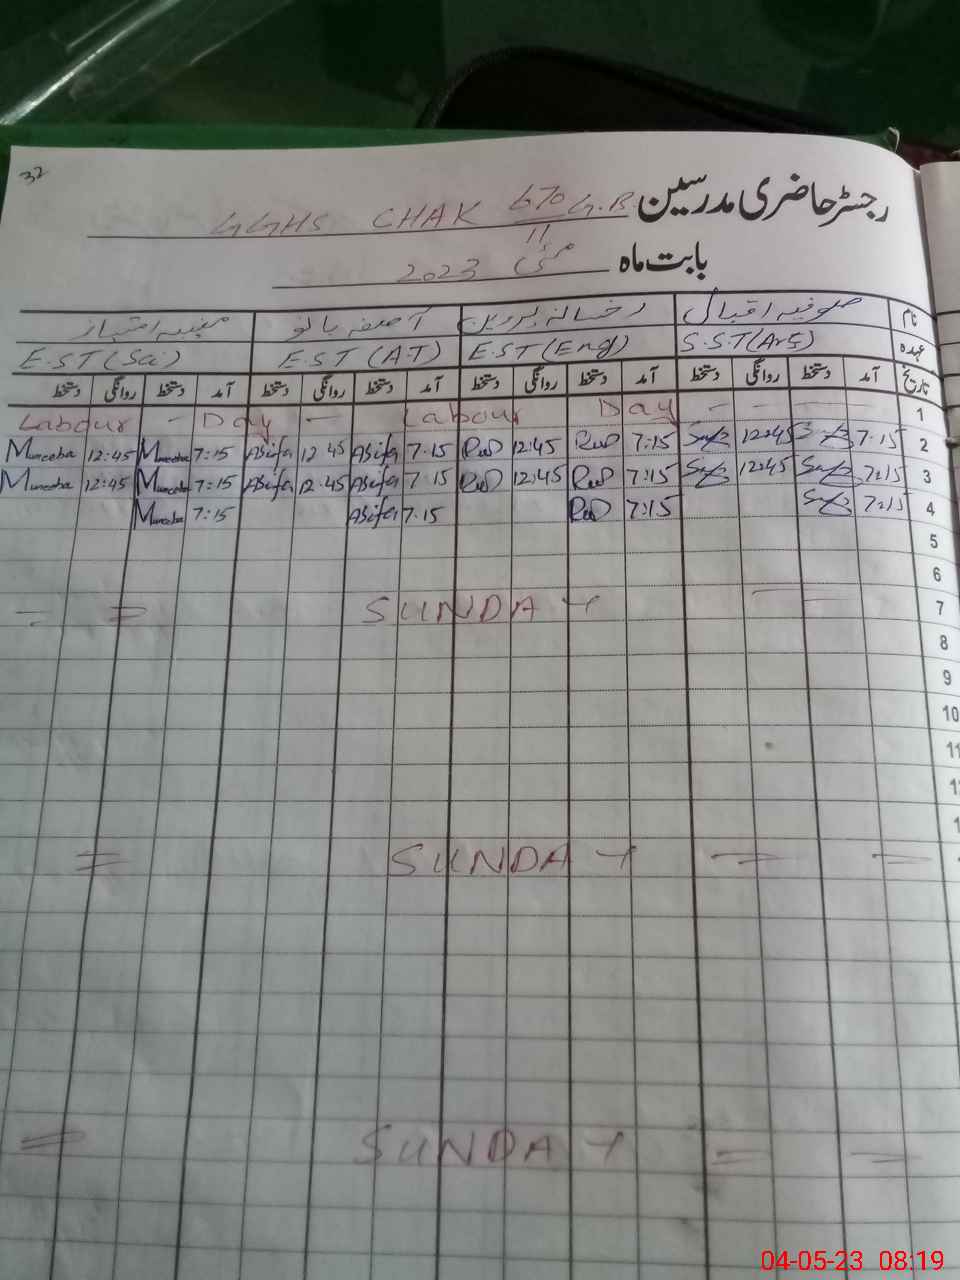 32
رجسٹر حاضری مدرسین GGHS CHAK 670 G.B
11
بابت ماہ مئی 2023
نام صوفیہ اقبال رخسانہ پروین آصفہ بانو منیبہ امتیاز
عہدہ S.S.T (Arts) E.S.T (Eng) E.S.T (A.T) E.S.T (Sci)
تاریخ آمد دستخط روانگی دستخط آمد دستخط روانگی دستخط آمد دستخط روانگی دستخط آمد دستخط روانگی دستخط
1 Labour - Day - Labour Day - - -
2 7:15 12:45 7:15 12:45 7.15 Asifa 12 45 Asifa 7:15 Muneeba 12:45 Muneeba
3 7:15 12:45 7:15 12:45 7 15 Asifa 12.45 Asifa 7:15 Muneeba 12:45 Muneeba
4 7:15 7:15 7.15 Asifa 7:15 Muneeba
5
6
7 = = SUNDAY
8
9
10
11
= SUNDAY = =
= SUNDAY = =
04-05-23 08:19